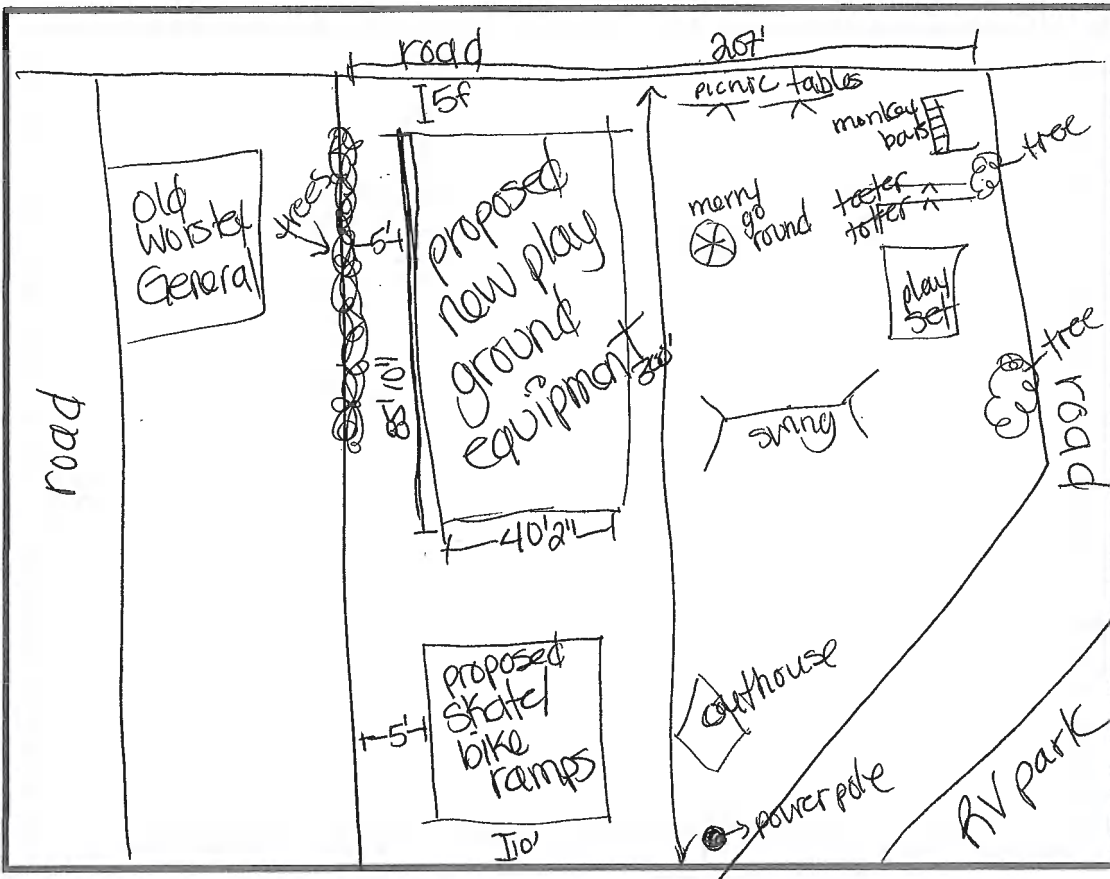 road
207'
5f
picnic tables
monkey
bars
tree
Old
Worstel
General
trees
5'
proposed
new play
ground
equipment
merry
go
round
teeter
totter
play
set
tree
88'10"
swing
road
road
40'2"
proposed
skate/
bike
ramps
5'
outhouse
power pole
RV park
10'